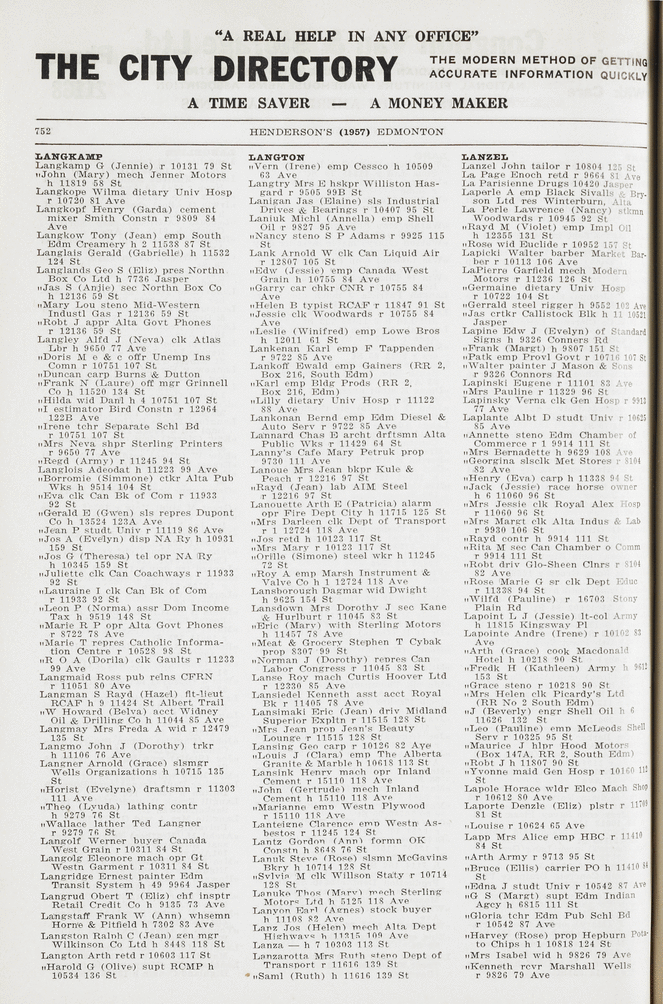 "A REAL HELP IN ANY OFFICE"
THE CITY DIRECTORY
THE MODERN METHOD OF GETTING
ACCURATE INFORMATION QUICKLY
A TIME SAVER — A MONEY MAKER
752
HENDERSON'S (1957) EDMONTON
LANGKAMP
Langkamp G (Jennie) r 10131 79 St
„John (Mary) mech Jenner Motors
h 11819 58 St
Langkope Wilma dietary Univ Hosp
r 10720 81 Ave
Langkopf Henry (Garda) cement
mixer Smith Constn r 9809 84
Ave
Langkow Tony (Jean) emp South
Edm Creamery h 2 11538 87 St
Langlais Gerald (Gabrielle) h 11532
124 St
Langlands Geo S (Eliz) pres Northn
Box Co Ltd h 7736 Jasper
„Jas S (Anjie) sec Northn Box Co
h 12136 59 St
„Mary Lou steno Mid-Western
Industl Gas r 12136 59 St
„Robt J appr Alta Govt Phones
r 12136 59 St
Langley Alfd J (Neva) clk Atlas
Lbr h 9650 77 Ave
„Doris M e & c offr Unemp Ins
Comn r 10751 107 St
„Duncan carp Burns & Dutton
„Frank N (Laure) off mgr Grinnell
Co h 11520 134 St
„Hilda wid Danl h 4 10751 107 St
„I estimator Bird Constn r 12964
122B Ave
„Irene tchr Separate Schl Bd
r 10751 107 St
„Mrs Neva shpr Sterling Printers
r 9650 77 Ave
„Regd (Army) r 11245 94 St
Langlois Adeodat h 11223 99 Ave
„Borromie (Simmone) ctkr Alta Pub
Wks h 9514 104 St
„Eva clk Can Bk of Com r 11933
92 St
„Gerald E (Gwen) sls repres Dupont
Co h 13524 123A Ave
„Jean P studt Univ r 11119 86 Ave
„Jos A (Evelyn) disp NA Ry h 10931
159 St
„Jos G (Theresa) tel opr NA Ry
h 10345 159 St
„Juliette clk Can Coachways r 11933
92 St
„Lauraine I clk Can Bk of Com
r 11933 92 St
„Leon P (Norma) assr Dom Income
Tax h 9519 148 St
„Marie R P opr Alta Govt Phones
r 8722 78 Ave
„Marie T repres Catholic Informa-
tion Centre r 10528 98 St
„R O A (Dorila) clk Gaults r 11233
99 Ave
Langmaid Ross pub relns CFRN
r 11051 80 Ave
Langman S Rayd (Hazel) flt-lieut
RCAF h 9 11424 St Albert Trail
„W Howard (Belva) acct Widney
Oil & Drilling Co h 11044 85 Ave
Langmay Mrs Freda A wid r 12479
135 St
Langmo John J (Dorothy) trkr
h 11106 76 Ave
Langner Arnold (Grace) slsmgr
Wells Organizations h 10715 135
St
„Horist (Evelyne) draftsmn r 11303
111 Ave
„Theo (Lyuda) lathing contr
h 9279 76 St
„Wallace lather Ted Langner
r 9279 76 St
Langolf Werner buyer Canada
West Grain r 10311 84 St
Langolg Eleonore mach opr Gt
Westn Garment r 10311 84 St
Langridge Ernest painter Edm
Transit System h 49 9964 Jasper
Langrud Obert T (Eliz) chf insptr
Retail Credit Co h 9135 73 Ave
Langstaff Frank W (Ann) whsemn
Horne & Pitfield h 7302 83 Ave
Langston Ralph C (Jean) gen mgr
Wilkinson Co Ltd h 8448 118 St
Langton Arth retd r 10603 117 St
„Harold G (Olive) supt RCMP h
10534 136 St
LANGTON
„Vern (Irene) emp Cessco h 10509
63 Ave
Langtry Mrs E hskpr Williston Has-
gard r 9505 99B St
Lanigan Jas (Elaine) sls Industrial
Drives & Bearings r 10407 95 St
Laniuk Michl (Annella) emp Shell
Oil r 9827 95 Ave
„Nancy steno S P Adams r 9925 115
St
Lank Arnold W clk Can Liquid Air
r 12807 105 St
„Edw (Jessie) emp Canada West
Grain h 10755 84 Ave
„Garry car chkr CNR r 10755 84
Ave
„Helen B typist RCAF r 11847 91 St
„Jessie clk Woodwards r 10755 84
Ave
„Leslie (Winifred) emp Lowe Bros
h 12011 61 St
Lankenan Karl emp F Tappenden
r 9722 85 Ave
Lankoff Ewald emp Gainers (RR 2,
Box 216, South Edm)
„Karl emp Bldg Prods (RR 2,
Box 216, Edm)
„Lilly dietary Univ Hosp r 11122
88 Ave
Lankonan Bernd emp Edm Diesel &
Auto Serv r 9722 85 Ave
Lannard Chas E archt drftsmn Alta
Public Wks r 11429 64 St
Lanny's Cafe Mary Petruk prop
9730 111 Ave
Lanoue Mrs Jean bkpr Kule &
Peach r 12216 97 St
„Rayd (Jean) lab AIM Steel
r 12216 97 St
Lanouette Arth E (Patricia) alarm
opr Fire Dept City h 11715 125 St
„Mrs Darleen clk Dept of Transport
r 1 12724 118 Ave
„Jos retd h 10123 117 St
„Mrs Mary r 10123 117 St
„Orille (Simone) steel wkr h 11245
72 St
„Roy A emp Marsh Instrument &
Valve Co h 1 12724 118 Ave
Lansborough Dagmar wid Dwight
h 9625 154 St
Lansdown Mrs Dorothy J sec Kane
& Hurlburt r 11045 83 St
„Eric (Mary) with Sterling Motors
h 11457 78 Ave
„Meat & Grocery Stephen T Cybak
prop 8307 99 St
„Norman J (Dorothy) repres Can
Labor Congress r 11045 83 St
Lanse Roy mach Curtis Hoover Ltd
r 12330 85 Ave
Lansiedel Kenneth asst acct Royal
Bk r 11405 78 Ave
Lansimaki Eric (Jean) driv Midland
Superior Expltn r 11515 128 St
„Mrs Jean prop Jean's Beauty
Lounge r 11515 128 St
Lansing Geo carp r 10126 82 Aye
„Louis J (Clara) emp The Alberta
Granite & Marble h 10618 113 St
Lansink Henry mach opr Inland
Cement r 15110 118 Ave
„John (Gertrude) mech Inland
Cement h 15110 118 Ave
„Marianne emp Westn Plywood
r 15110 118 Ave
Lanteigne Clarence emp Westn As-
bestos r 11245 124 St
Lantz Gordon (Ann) formn OK
Constn h 8648 76 St
Lanuk Steve (Rose) slsmn McGavins
Bkry h 10714 128 St
„Sylvia M clk Willson Staty r 10714
128 St
Lanuke Thos (Mary) mech Sterling
Motors Ltd h 5125 118 Ave
Lanyon Earl (Agnes) stock buyer
h 11108 82 Ave
Lanz Jos (Helen) mech Alta Dept
Highways h 11315 109 Ave
Lanza — h 7 10303 113 St
Lanzarotta Mrs Ruth steno Dept of
Transport r 11616 139 St
„Saml (Ruth) h 11616 139 St
LANZEL
Lanzel John tailor r 10804 125 St
La Page Enoch retd r 9664 81 Ave
La Parisienne Drugs 10420 Jasper
Laperle A emp Black Sivalls & Bry-
son Ltd res Winterburn, Alta
La Perle Lawrence (Nancy) stkmn
Woodwards r 10945 92 St
„Rayd M (Violet) emp Impl Oil
h 12355 131 St
„Rose wid Euclide r 10952 157 St
Lapicki Walter barber Market Bar-
ber r 10113 106 Ave
LaPierre Garfield mech Modern
Motors r 11236 126 St
„Germaine dietary Univ Hosp
r 10722 104 St
„Gerrald steel rigger h 9552 102 Ave
„Jas crtkr Callistock Blk h 11 10521
Jasper
Lapine Edw J (Evelyn) of Standard
Signs h 9326 Conners Rd
„Frank (Margt) h 9807 151 St
„Patk emp Provl Govt r 10716 107 St
„Walter painter J Mason & Sons
r 9326 Connors Rd
Lapinski Eugene r 11101 83 Ave
„Mrs Pauline r 11329 96 St
Lapinsky Verna clk Gen Hosp r 9913
77 Ave
Laplante Albt D studt Univ r 10625
85 Ave
„Annette steno Edm Chamber of
Commerce r 1 9914 111 St
„Mrs Bernadette h 9629 108 Ave
„Georgina slsclk Met Stores r 8104
82 Ave
„Henry (Eva) carp h 11338 94 St
„Jack (Jessie) race horse owner
h 6 11060 96 St
„Mrs Jessie clk Royal Alex Hosp
r 11060 96 St
„Mrs Margt clk Alta Indus & Lab
r 9930 106 St
„Rayd contr h 9914 111 St
„Rita M sec Can Chamber o Comm
r 9914 111 St
„Robt driv Glo-Sheen Clnrs r 8104
82 Ave
„Rose Marie G sr clk Dept Educ
r 11338 94 St
„Wilfd (Pauline) r 16703 Stony
Plain Rd
Lapoint L J (Jessie) lt-col Army
h 11815 Kingsway Pl
Lapointe Andre (Irene) r 10162 83
Ave
„Arth (Grace) cook Macdonald
Hotel h 10218 90 St
„Fredk H (Kathleen) Army h 9612
153 St
„Grace steno r 10218 90 St
„Mrs Helen clk Picardy's Ltd
(RR No 2 South Edm)
„J (Beverly) engr Shell Oil h 6
11626 132 St
„Leo (Pauline) emp McLeods Shell
Serv r 10325 95 St
„Maurice J hlpr Hood Motors
(Box 147A, RR 2, South Edm)
„Robt J h 11807 90 St
„Yvonne maid Gen Hosp r 10160 112
St
Lapole Horace wldr Elco Mach Shop
r 10612 80 Ave
Laporte Denzle (Eliz) plstr r 11709
81 St
„Louise r 10624 65 Ave
Lapp Mrs Alice emp HBC r 11410
84 St
„Arth Army r 9713 95 St
„Bruce (Ellis) carrier PO h 11410 84
St
„Edna J studt Univ r 10542 87 Ave
„G S (Margt) supt Edm Indian
Agcy h 6815 111 St
„Gloria tchr Edm Pub Schl Bd
r 10542 87 Ave
„Harvey (Rose) prop Hepburn Pota-
to Chips h 1 10818 124 St
„Mrs Isabel wid h 9826 79 Ave
„Kenneth rcvr Marshall Wells
r 9826 79 Ave